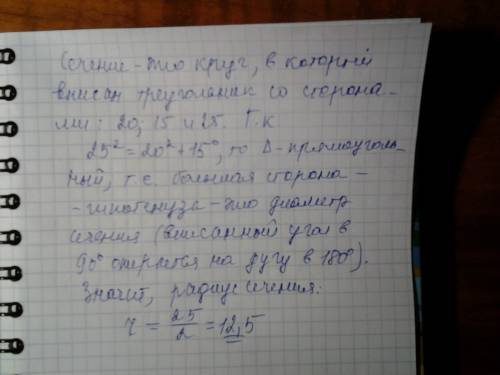 Сечение - это круг, в который
вписан треугольник со сторона-
ми: 20; 15 и 25. Т.к
25² = 20² + 15², то Δ - прямоуголь-
ный, т.е. большая сторона -
- гипотенуза - это диаметр
сечения (вписанный угол в
90° опирается на дугу в 180°).
Значит, радиус сечения:
r = 25/2 = 12,5